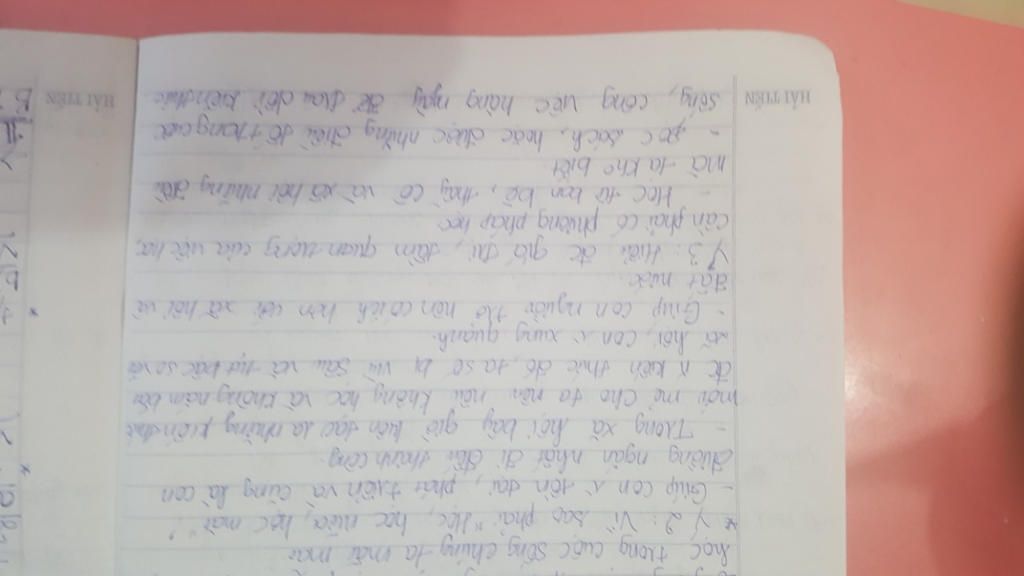 học trong cuộc sống chúng ta mãi mãi
* Ý 2: Vì sao phải "Học, học nữa, học mãi"?
- Giúp con x tồn tại, phát triển và cũng là con
đường ngắn nhất đi đến thành công.
- Trong xã hội bây giờ kiến tạo ra những kiến thức
mới mẻ cho ta nên nếu không học và không nắm bắt
đc x kiến thức đó, ta sẽ bị vùi sâu và tụt bậc so với
xã hội, con x xung quanh.
- Giúp con người trở nên có ích hơn với xã hội và
đất nước.
Ý 3: Hiểu đc giá trị, tầm quan trọng của việc học,
cần phải có phương pháp học
- Học từ bạn bè, thầy cô và xã hội những điều
mà ta kho biết
- Đọc sách, hoặc được những điều đó trong cuộc
sống, công việc hàng ngày để trau dồi kiến thức
HẢI TIẾN
HẢI TIẾN